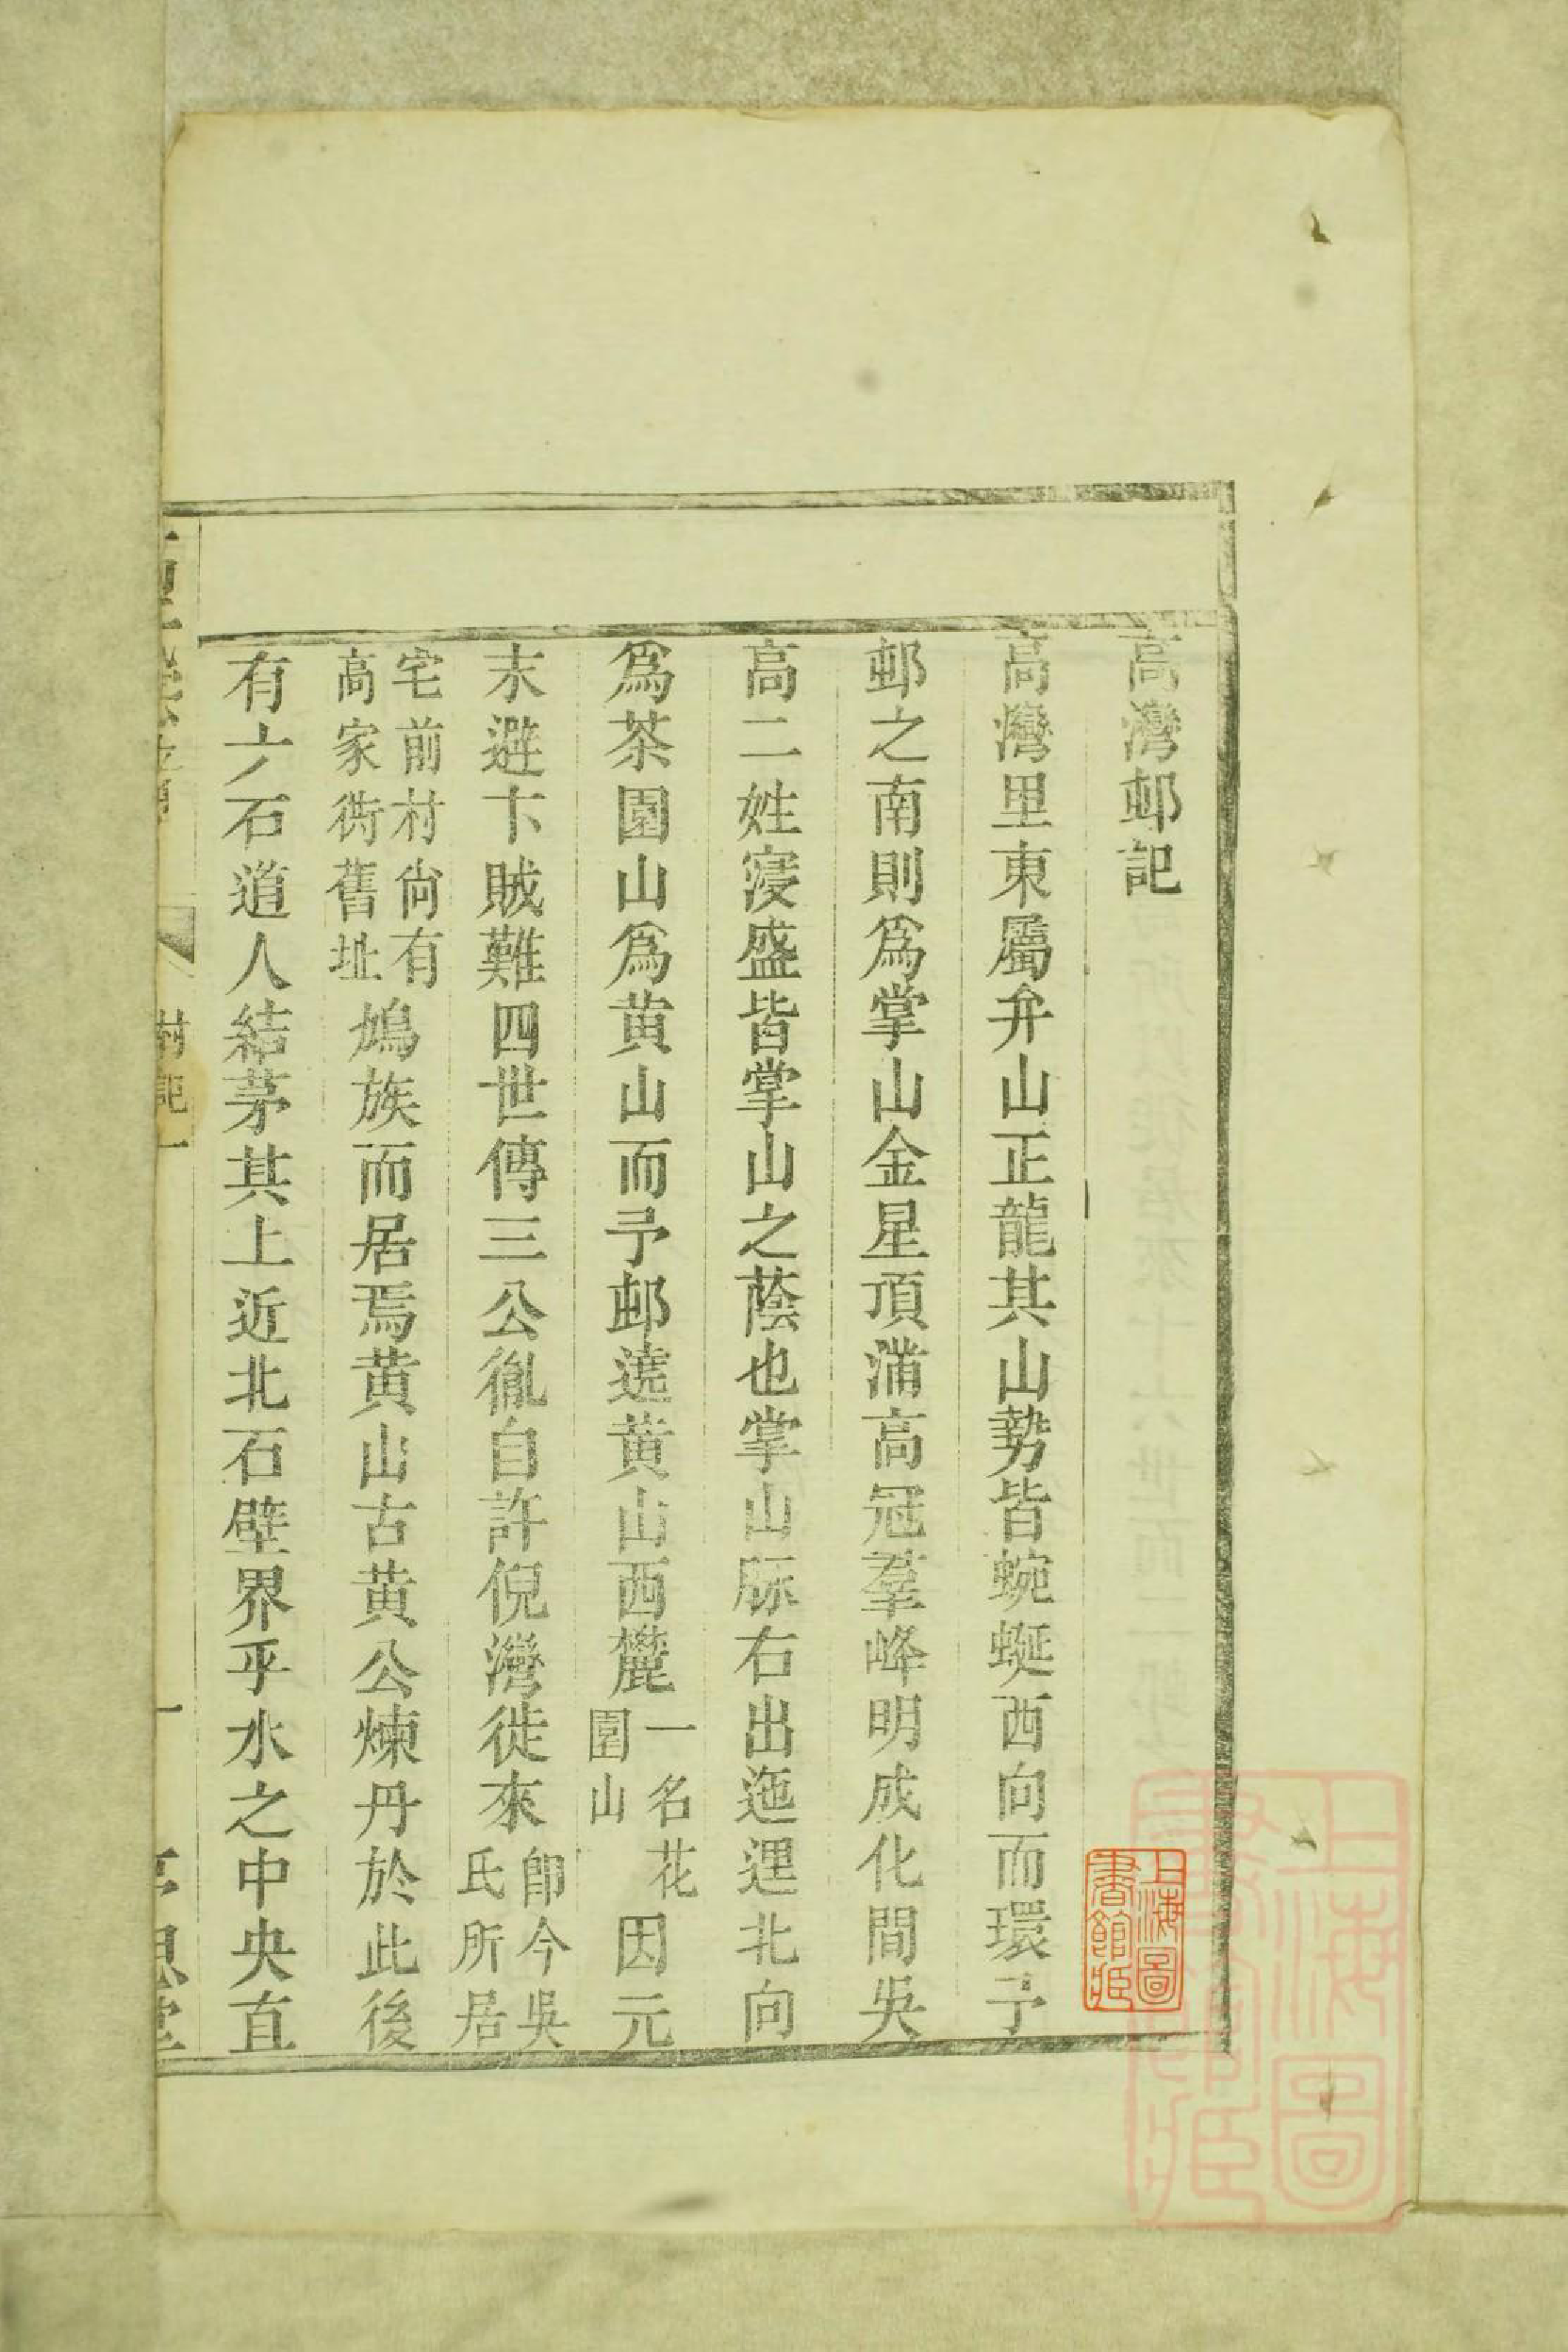 高灣邨記
高灣里東屬弁山正龍其山勢皆蜿蜒西向而環予
邨之南則爲掌山金星頂滿高冠羣峰明成化間吳
高二姓寖盛皆掌山之蔭也掌山脈右出迤邐北向
爲茶園山爲黄山而予邨遶黄山西麓一名花園山因元
末避卞賊難四世傳三公胤自許倪灣徙來卽今吳氏所居
宅前村尙有高家衖舊址鳩族而居焉黄山古黄公煉丹於此後
有六石道人結茅其上近北石壁界乎水之中央直
村記一
上海圖書館藏
上海圖書館藏